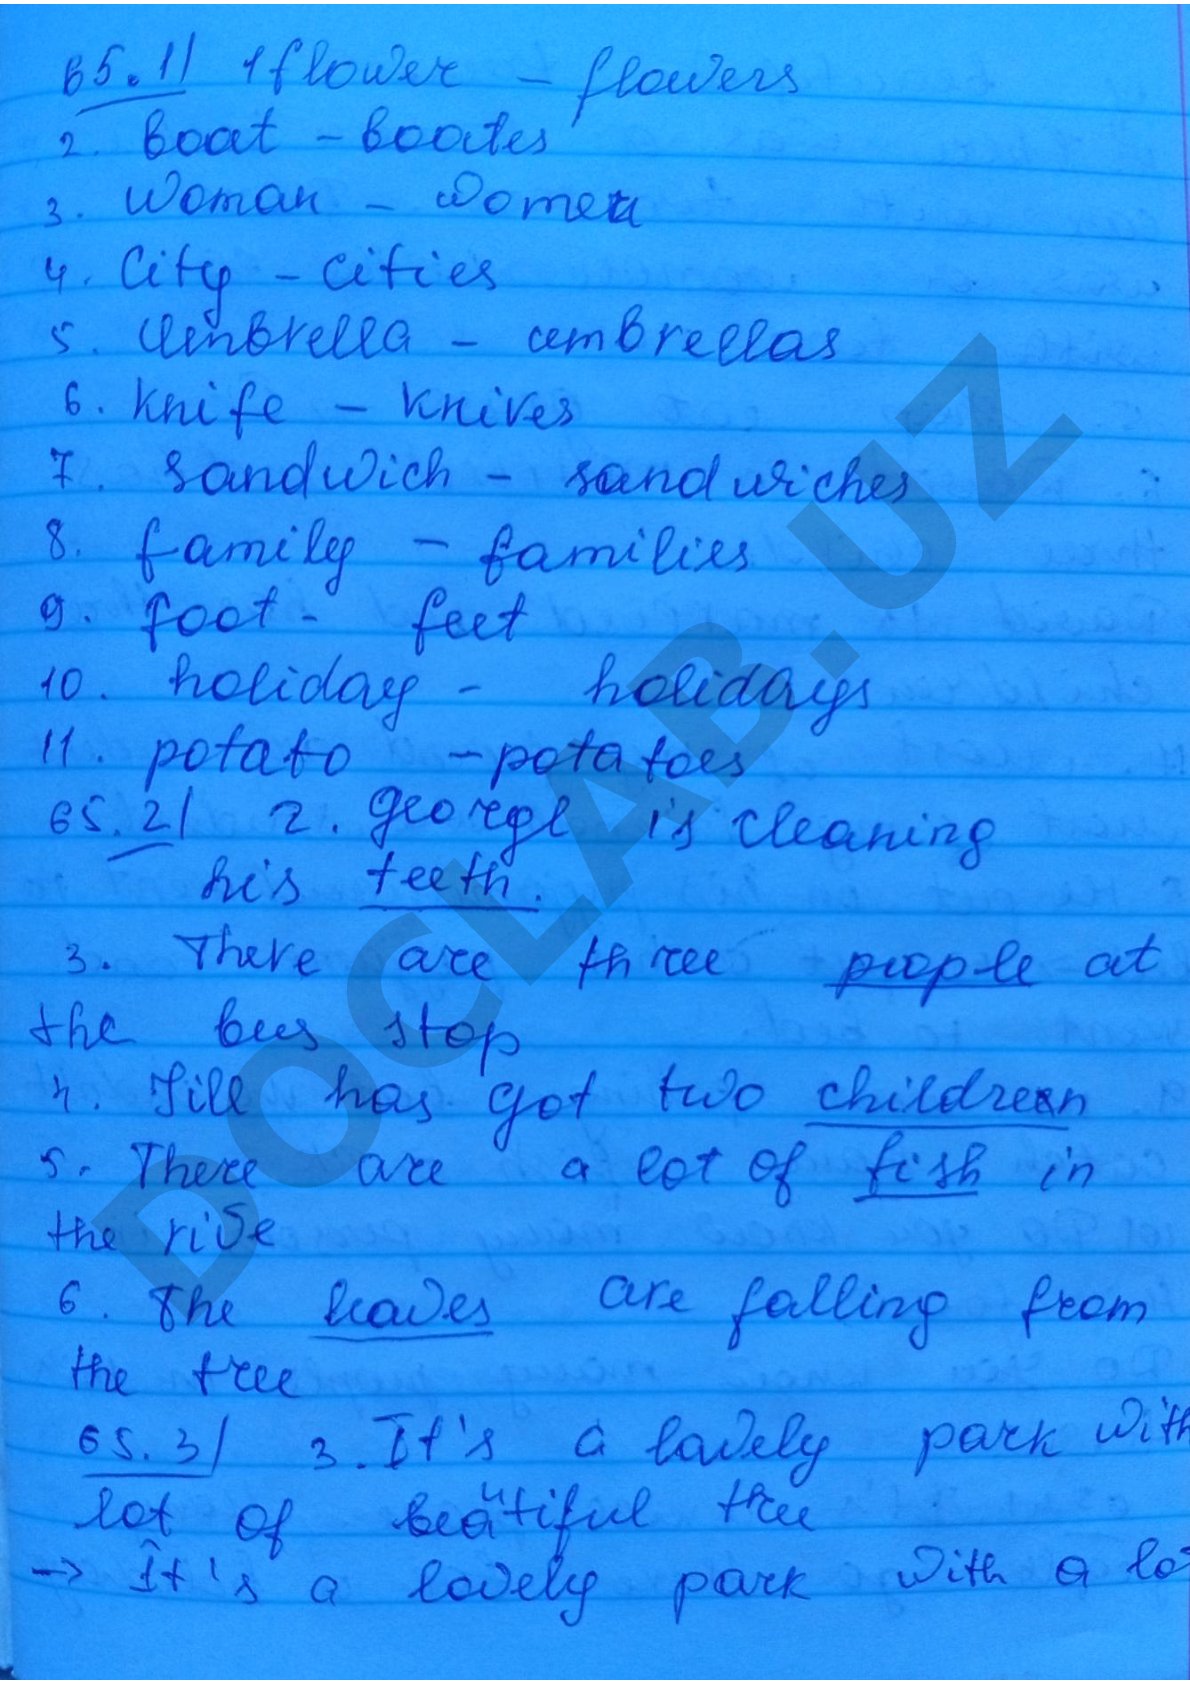 65.1/ 1 flower - flowers
2. boat - boates
3. woman - women
4. City - cities
5. Umbrella - umbrellas
6. knife - knives
7. sandwich - sandwiches
8. family - families
9. foot - feet
10. holiday - holidays
11. potato - potatoes
65.2/ 2. George is cleaning
his teeth.
3. There are three people at
the bus stop
4. Jill has got two children
5. There are a lot of fish in
the rive
6. The leaves are falling from
the tree
65.3/ 3. It's a lovely park with
lot of beautiful thee
→ It's a lovely park with a lot
DOCLAB.UZ